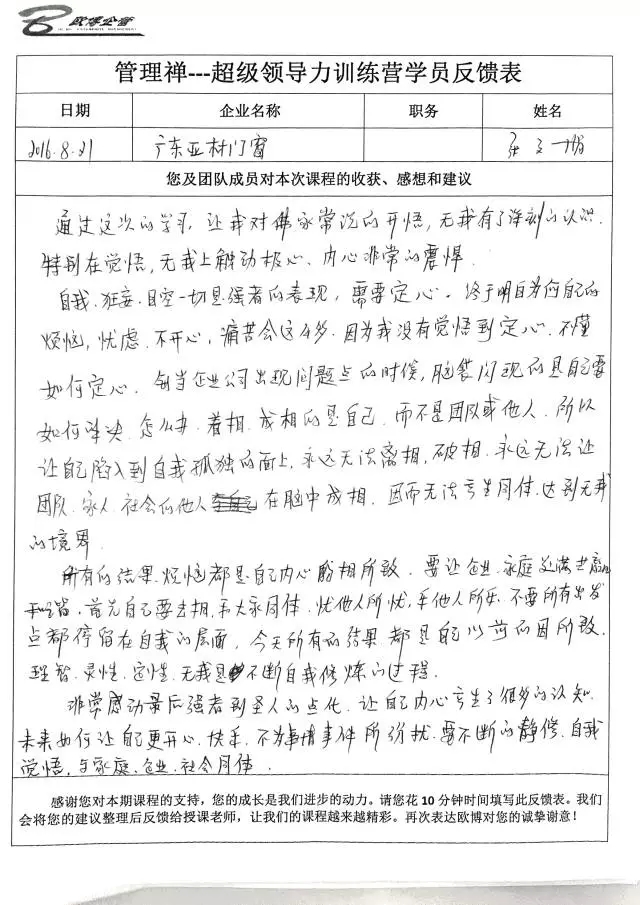 欧博企管
管理禅---超级领导力训练营学员反馈表
日期 企业名称 职务 姓名
2016.8.21 广东亚材门窗 张文
您及团队成员对本次课程的收获、感想和建议
通过这次的学习,让我对佛家常说的开悟,无我有了深刻的认识.
特别在觉悟,无我上触动极心、内心非常的震憾.
自我.狂妄.目空一切是强者的表现,需要定心。终于明白为何自己的
烦恼,忧虑.不开心,痛苦会这么多.因为我没有觉悟到定心.不懂
如何定心.每当企业公司出现问题点的时候,脑袋闪现的是自己要
如何解决.怎么办.着相.成相的是自己.而不是团队或他人.所以
让自己陷入到自我孤独的面上,永远无法离相,破相.永远无法让
团队.家人.社会的他人在脑中成相.因而无法产生同体.达到无我
的境界.
所有的结果.烦恼都是自己内心的相所致.要让企业.家庭美满
首先自己要去相,和大家同体.忧他人所忧,乐他人所乐.不要所有出发
点都停留在自我的层面,今天所有的结果都是自己以前的因所致.
理智.灵性.定性.无我是不断自我修炼的过程.
非常感动最后强者到圣人的点化.让自己内心产生了很多的认知.
未来如何让自己更开心.快乐.不为事情事件所纷扰.要不断的静修.自我
觉悟,与家庭.企业.社会同体.
感谢您对本期课程的支持,您的成长是我们进步的动力。请您花 10 分钟时间填写此反馈表。我们
会将您的建议整理后反馈给授课老师,让我们的课程越来越精彩。再次表达欧博对您的诚挚谢意!